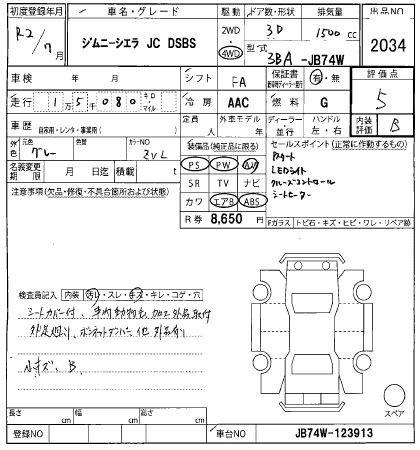 初度登録年月 車名・グレード 駆動 ドア数・形状 排気量 出品NO
R2/7月 ジムニーシエラ JC DSBS 2WD・4WD 3D 1500 cc 2034
型式 3BA-JB74W
車検 年 月 シフト FA 保証書 有・無 評価点
走行 1万5千080 キロ・マイル 冷房 AAC 燃料 G 5
車歴 自家用・レンタ・事業用( ) 定員 人 外車モデル 年 ディーラー・並行 ハンドル 左・右 内装評価 B
外色 元色 グレー 色替 カラーNO ZVL 装備品(純正品に限る) セールスポイント(正常に作動するもの)
名義変更期限 月 日迄 積載 t PS PW AW スマート
注意事項(欠品・修復・不具合箇所および状態) SR TV ナビ LEDライト
カワ エアB ABS クルーズコントロール
R券 8,650 円 シートヒーター
Fガラス トビ石・キズ・ヒビ・ワレ・リペア跡
検査員記入 内装 汚れ・スレ・キズ・キレ・コゲ・穴
シートカバー付、車内動物毛 加工 外品取付
外足廻り、ボンネットダンパー 他 外品有り
小キズ、B
スペア
長さ cm 幅 cm 高さ cm
登録NO 車台NO JB74W-123913